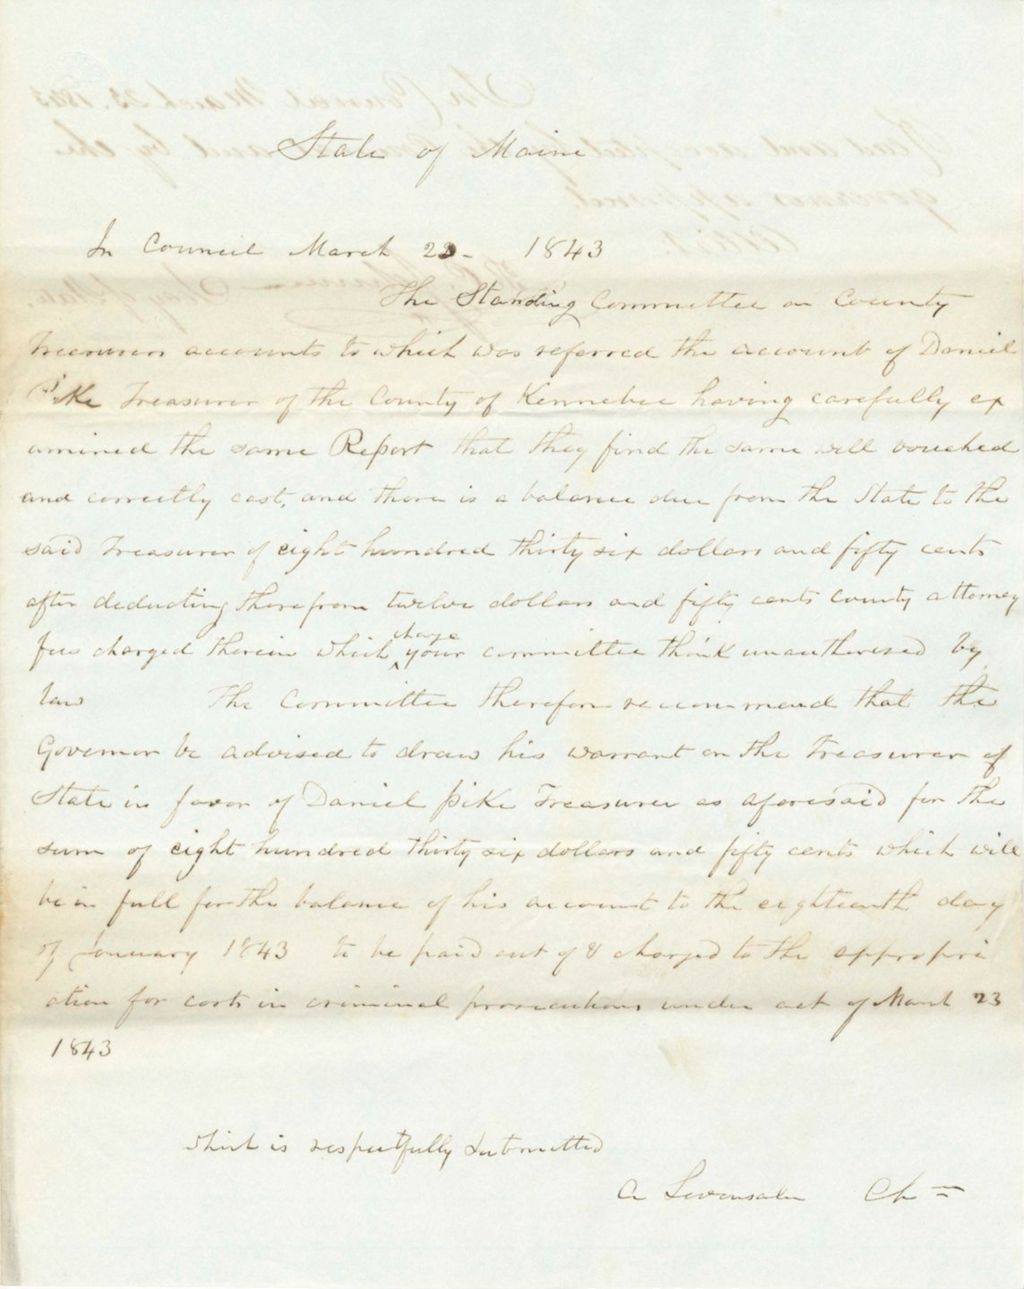 State of Maine
In Council March 23 - 1843
The Standing Committee on County
Treasurers accounts to which was referred the account of Daniel
Pike Treasurer of the County of Kennebec having carefully ex
amined the same Report that they find the same well vouched
and correctly cast, and there is a balance due from the State to the
said Treasurer of eight hundred thirty six dollars and fifty cents
after deducting therefrom twelve dollars and fifty cents County attorney
fees charged therein which charge your committee think unauthorised by
law The Committee therefore recommend that the
Governor be advised to draw his warrant on the Treasurer of
State in favor of Daniel Pike Treasurer as aforesaid for the
sum of eight hundred thirty six dollars and fifty cents which will
be in full for the balance of his account to the eighteenth day
of January 1843 to be paid out of & charged to the appropri
ation for costs in criminal prosecutions under act of March 23
1843
which is respectfully submitted
A Levensaler Chn